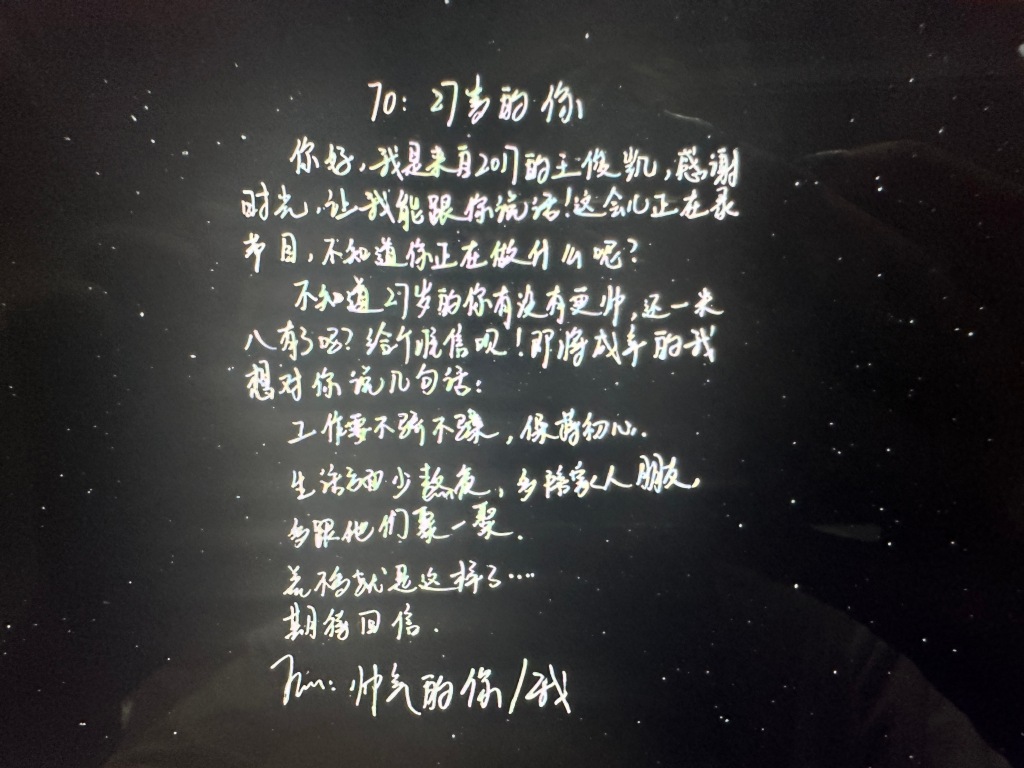 TO: 27岁的你
你好,我是来自2017的王俊凯,感谢
时光,让我能跟你说话!这会儿正在录
节目,不知道你正在做什么呢?
不知道27岁的你有没有更帅,还一米
八有了吧?给个准信呗!即将成年的我
想对你说几句话:
工作要不骄不躁,保持初心.
生活方面少熬夜,多陪家人朋友,
多跟他们聚一聚.
差不多就是这样了····
期待回信.
From: 帅气的你/我